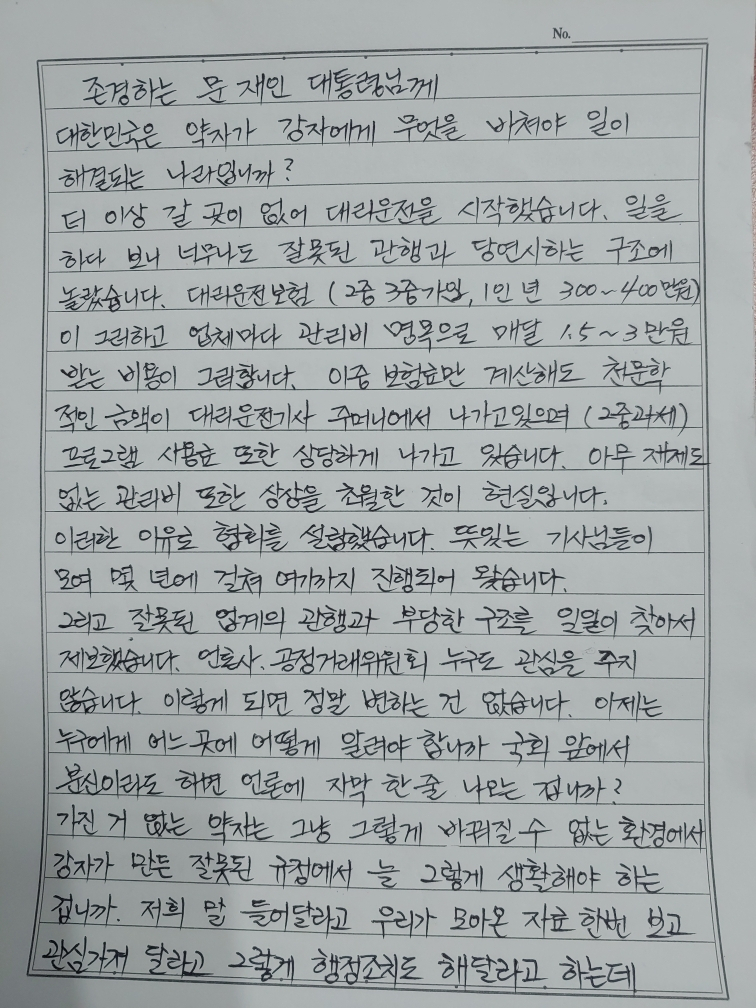 No.
존경하는 문 재인 대통령님께
대한민국은 약자가 강자에게 무엇을 바쳐야 일이
해결되는 나라입니까?
더 이상 갈 곳이 없어 대리운전을 시작했습니다. 일을
하다 보니 너무나도 잘못된 관행과 당연시하는 구조에
놀랐습니다. 대리운전보험 (2중 3중가입, 1인 년 300~400만원)
이 그러하고 업체마다 관리비 명목으로 매달 1.5~3만원
받는 비용이 그러합니다. 이중 보험료만 계산해도 천문학
적인 금액이 대리운전기사 주머니에서 나가고있으며 (2중과세)
프로그램 사용료 또한 상당하게 나가고 있습니다. 아무 제제도
없는 관리비 또한 상상을 초월한 것이 현실입니다.
이러한 이유로 협회를 설립했습니다. 뜻있는 기사님들이
모여 몇 년에 걸쳐 여기까지 진행되어 왔습니다.
그리고 잘못된 업계의 관행과 부당한 구조를 일일이 찾아서
제보했습니다. 언론사. 공정거래위원회 누구도 관심을 주지
않습니다. 이렇게 되면 정말 변하는 건 없습니다. 이제는
누구에게 어느 곳에 어떻게 알려야 합니까 국회 앞에서
분신이라도 하면 언론에 자막 한 줄 나오는 겁니까?
가진 거 없는 약자는 그냥 그렇게 바꿔질 수 없는 환경에서
강자가 만든 잘못된 규정에서 늘 그렇게 생활해야 하는
겁니까. 저희 말 들어달라고 우리가 모아온 자료 한번 보고
관심가져 달라고 그렇게 행정조치도 해달라고 하는데